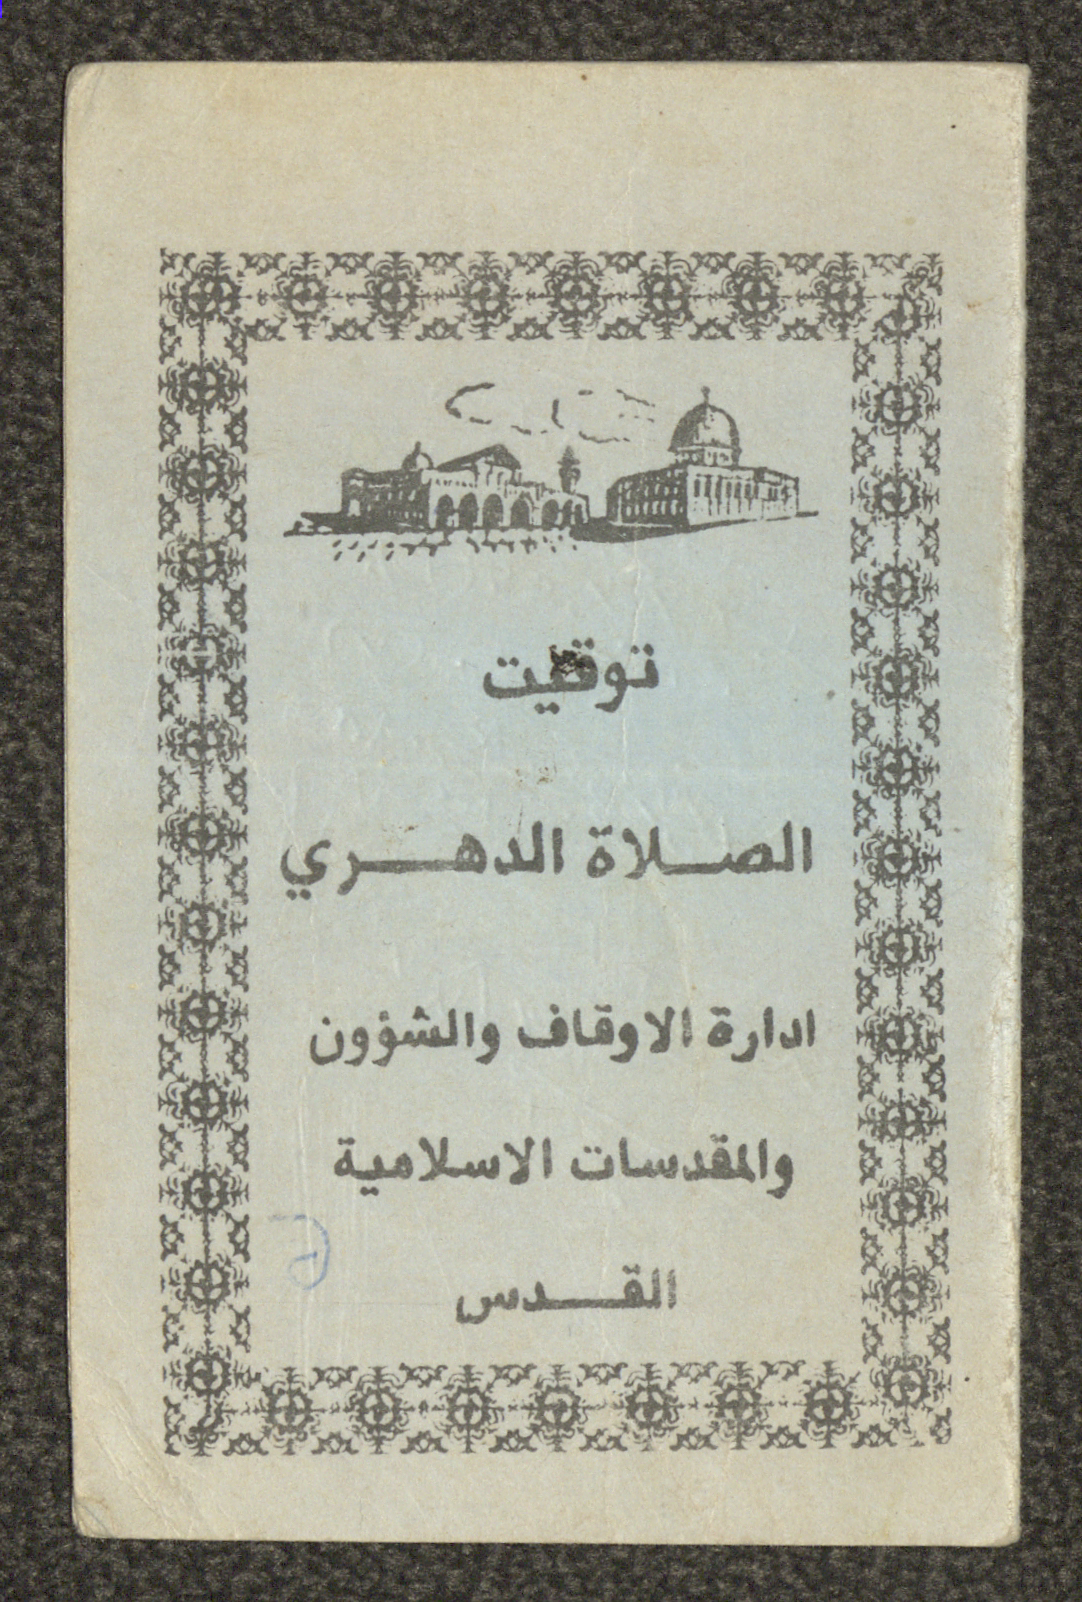 توقيت
الصلاة الدهري
ادارة الاوقاف والشؤون
والمقدسات الاسلامية
القدس